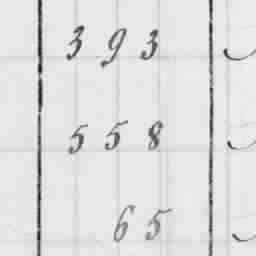 393
558
65